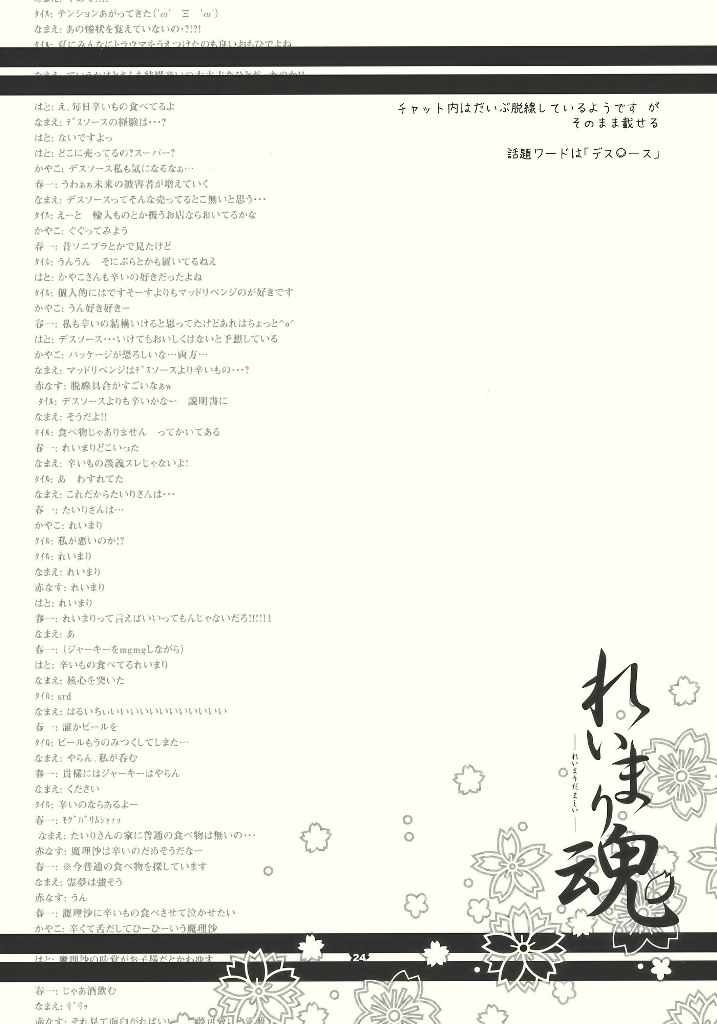 ﾀｲﾙ: テンションあがってきた('ω'　Ξ　'ω')
なまえ: あの惨状を覚えていないの・?!?!
はと: え、毎日辛いもの食べてるよ
なまえ: ﾃﾞｽソースの経験は・・・?
はと: ないですよっ
はと: どこに売ってるの?スーパー?
かやこ: デスソース私も気になるなぁ…
春一: うわぁぁ未来の被害者が増えていく
なまえ: デスソースってそんな売ってるとこ無いと思う・・・
ﾀｲﾙ: えーと　輸入ものとか扱うお店ならおいてるかな
かやこ: ぐぐってみよう
春一: 昔ソニプラとかで見たけど
ﾀｲﾙ: うんうん　そにぷらとかも置いてるねえ
はと: かやこさんも辛いの好きだったよね
ﾀｲﾙ: 個人的にはですそーすよりもマッドリベンジのが好きです
かやこ: うん好き好きー
春一: 私も辛いの結構いけると思ってたけどあれはちょっと^o^
はと: デスソース・・・いけてもおいしくはないと予想している
かやこ: パッケージが恐ろしいな…両方…
なまえ: マッドリベンジはﾃﾞｽソースより辛いもの・・・?
赤なす: 脱線具合がすごいなぁw
ﾀｲﾙ: デスソースよりも辛いかなー　説明書に
なまえ: そうだよ!!
ﾀｲﾙ: 食べ物じゃありません　ってかいてある
春一: れいまりどこいった
なまえ: 辛いもの談義スレじゃないよ!
ﾀｲﾙ: あ　わすれてた
なまえ: これだからたいりさんは・・・
春一: たいりさんは…
かやこ: れいまり
ﾀｲﾙ: 私が悪いのか!?
ﾀｲﾙ: れいまり
なまえ: れいまり
赤なす: れいまり
はと: れいまり
春一: れいまりって言えばいいってもんじゃないだろ!!!!!1
なまえ: あ
春一: (ジャーキーをmgmgしながら)
はと: 辛いもの食べてるれいまり
なまえ: 核心を突いた
ﾀｲﾙ: srd
なまえ: はるいちぃいいいいいいいいいいいい
春一: 誰かビールを
ﾀｲﾙ: ビールもうのみつくしてしまた…
なまえ: やらん、私が呑む
春一: 貴様にはジャーキーはやらん
なまえ: ください
ﾀｲﾙ: 辛いのならあるよー
春一: ﾓｸﾞﾊﾞﾘﾑｼｬｧｯ
なまえ: たいりさんの家に普通の食べ物は無いの・・・
赤なす: 魔理沙は辛いのだめそうだなー
春一: ※今普通の食べ物を探しています
なまえ: 霊夢は強そう
赤なす: うん
春一: 魔理沙に辛いもの食べさせて泣かせたい
かやこ: 辛くて舌だしてひーひーいう魔理沙
はと: 魔理沙の味覚がお子様だとかわゆす
春一: じゃあ酒飲む
チャット内はだいぶ脱線しているようです　が
そのまま載せる
話題ワードは「デス〇ース」
れいまり魂
れいまりだましい
24